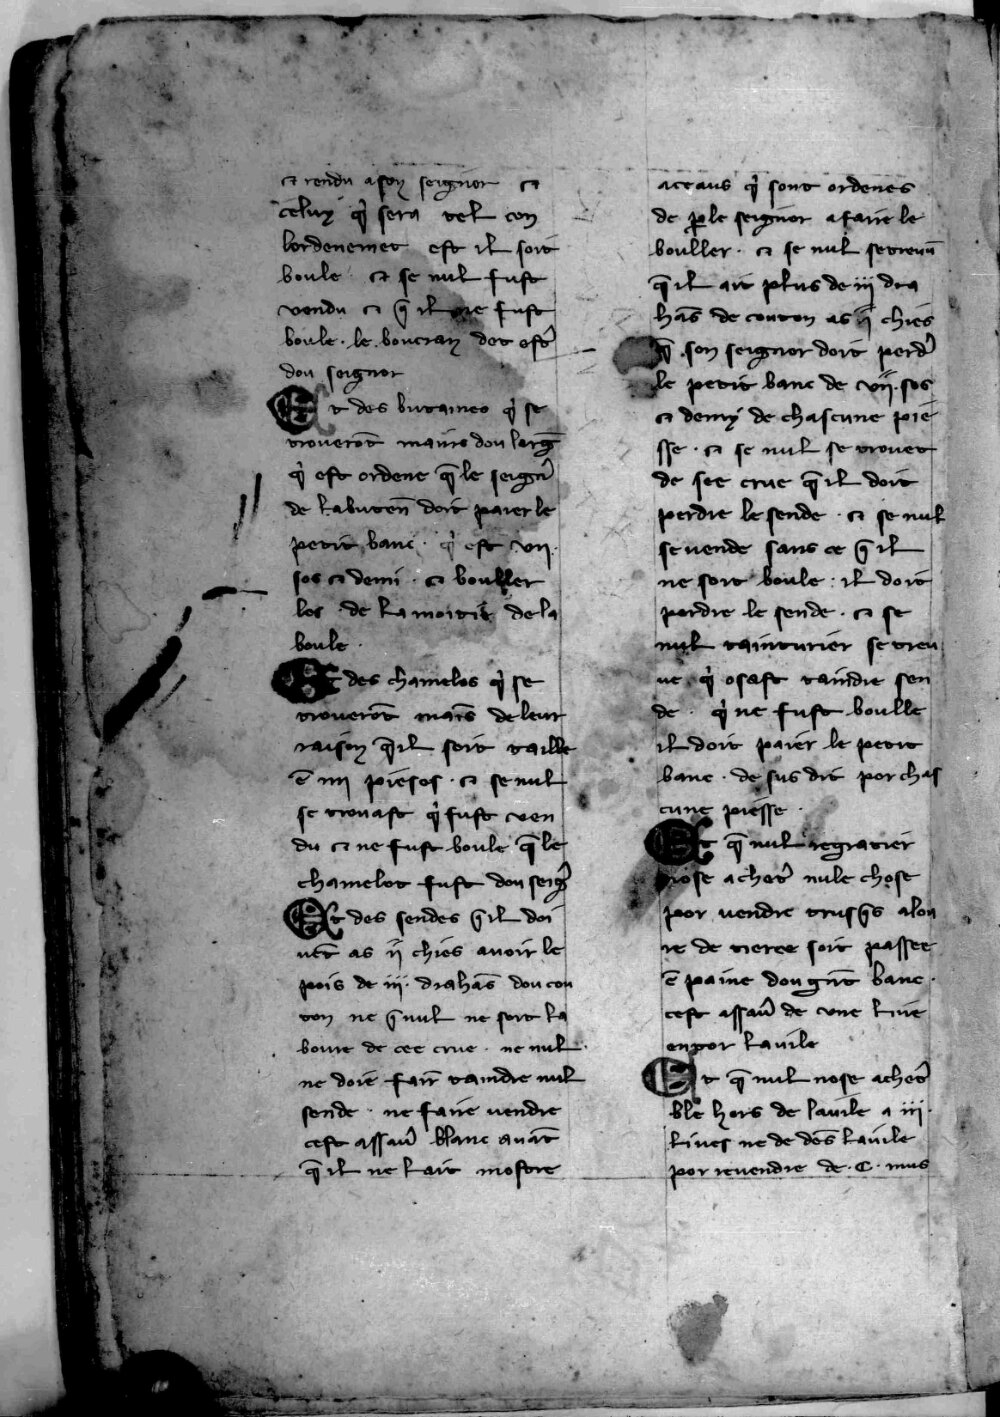 et rendu a son seignor et
celuy q̇ sera tel con
lordenemet est il soit
boule · et se nul fust
vendu et q̄ il ne fust
boule · le boucran det est̾
dou seignor
Et des butaineo q̇ se
troverōt mains dou larg̅
q̇ est ordene q̄ le seign̾
de la buten̄ doit paier le
petit banc · q̇ est vii·
sos et demi · et bouller
les · de la moitie de la
boule ·
Et des chamelos q̇ se
troverōt mais̄ de leur
raison q̄ il soit taille
ē iiii piesos · et se nul
se trovast q̇ fust ven
du et ne fust boule q̄ le
chamelot fust dou seig̾
Et des sendes q̄ il doi
uēt as ii chies avoir le
pois de iii· drahās dou cou
ton ne q̄ nul ne soit la
boure de cee crue · ne nul·
ne doie fair̄ taindre nul
sende · ne faire vendre
cest assav̾ blanc avāt
q̄ il ne lait mostre
aceaus q̇ sont ordenes
de ꝑ le seignor a faire le
bouller · et se nul se treuu̅
q̄ il ait plus de iii dra
hās de couton as ii chies
q̄ · son seignor doit perdr̾
le petit banc de vii· sos
et demy de chascune pie
sse · et se nul se trovet
de see crue q̄ il doit
perdre le sende · et se nul
se vende sans ce q̄ il
ne soit boule : il doit
perdre le sende · et se
nul tainturier se treu
ve q̇ osast taindre sen
de · q̇ ne fust boulle
il doit paier le petit
banc · de sus dit por chas
cune piesse ·
Et q̄ nul regratier
nose achet̾ nule chose
por vendre trusq̄s a lou
re de tierce soit passee
ē paine dou gr̄t banc·
cest assav̾ de une live
entor la vile
Et q̄ nul nose achet̾
ble hors de la vile a iii·
lives ne de dēs la vile
por revendre de · C · mus